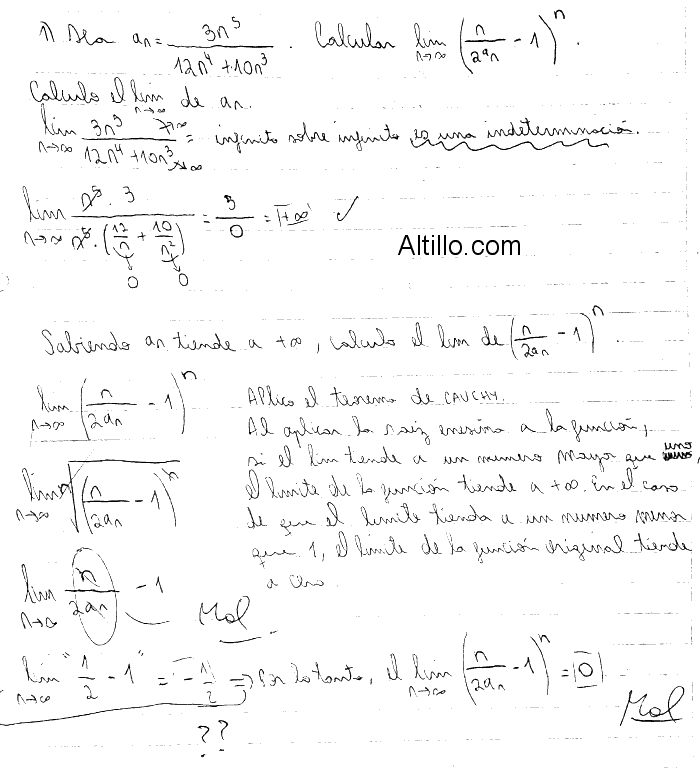 1) Sea an = 3n^5 / (12n^4 + 10n^3) . Calcular lim n→∞ (n/2an - 1)^n .
Calculo el lim n→∞ de an.
lim n→∞ 3n^5 →∞ / 12n^4 + 10n^3 →∞ = infinito sobre infinito es una indeterminación.
lim n→∞ n^5 . 3 / n^5 . (12/n + 10/n^2) = 3/0 = +∞ ✓
0 0
Altillo.com
Sabiendo an tiende a +∞, calculo el lim de (n/2an - 1)^n .
lim n→∞ (n/2an - 1)^n
Aplico el teorema de CAUCHY.
Al aplicar la raiz enesima a la función,
si el lim tiende a un numero mayor que uno
el limite de la función tiende a +∞. En el caso
de que el limite tienda a un numero menor
que 1, el limite de la función original tiende
a cero.
lim n→∞ n√(n/2an - 1)^n
lim n→∞ n/2an - 1
Mal
lim n→∞ "1/2 - 1" = -1/2 ⇒ Por lo tanto, el lim n→∞ (n/2an - 1)^n = 0
Mal
??